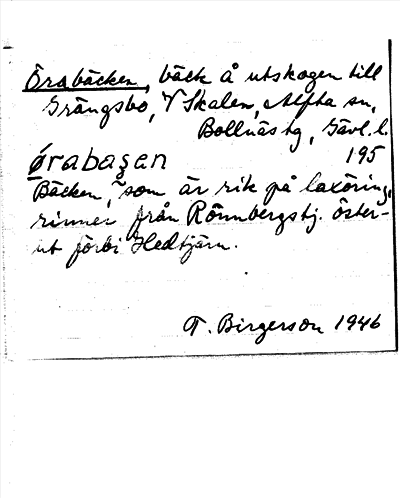 Örabäcken, bäck å utskogen till
Grängsbo, V Skalen, Alfta sn,
Bollnäs tg, Gävl. l.
195
ørabaşen
Bäcken, som är rik på laxöring,
rinner från Rönnbergstj. öster-
ut förbi Hedtjärn.
T. Birgerson 1946